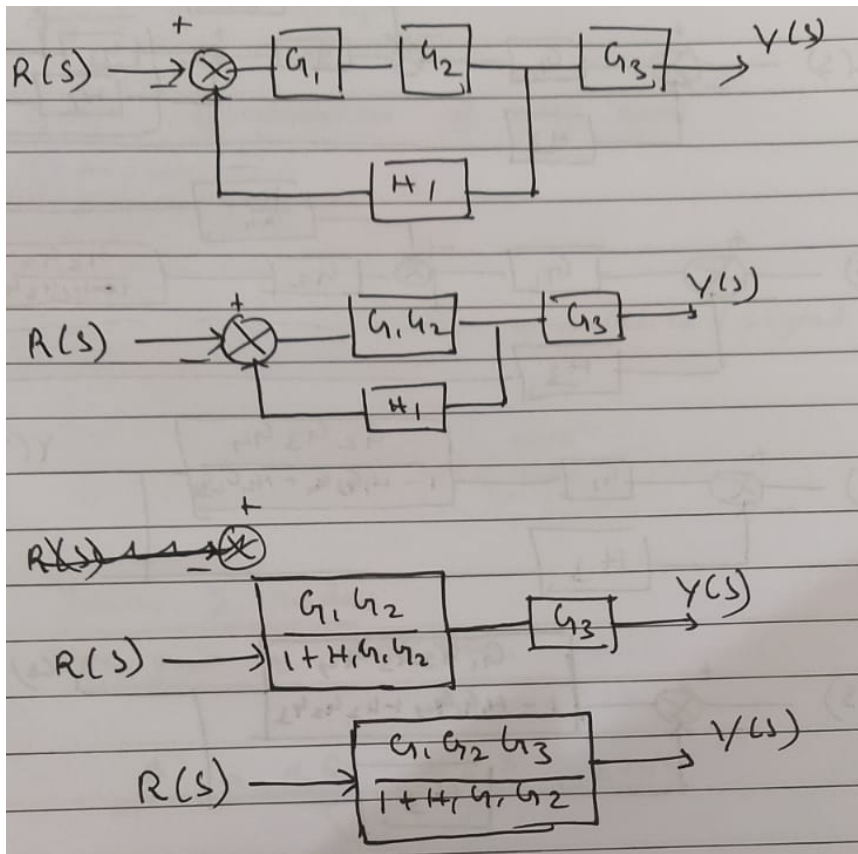 +
R(S) − G₁ G₂ G₃ Y(S)
H₁
+
R(S) − G₁G₂ G₃ Y(S)
H₁
+
R(S) −
G₁G₂
R(S) 1+H₁G₁G₂ G₃ Y(S)
G₁G₂G₃
R(S) 1+H₁G₁G₂ Y(S)